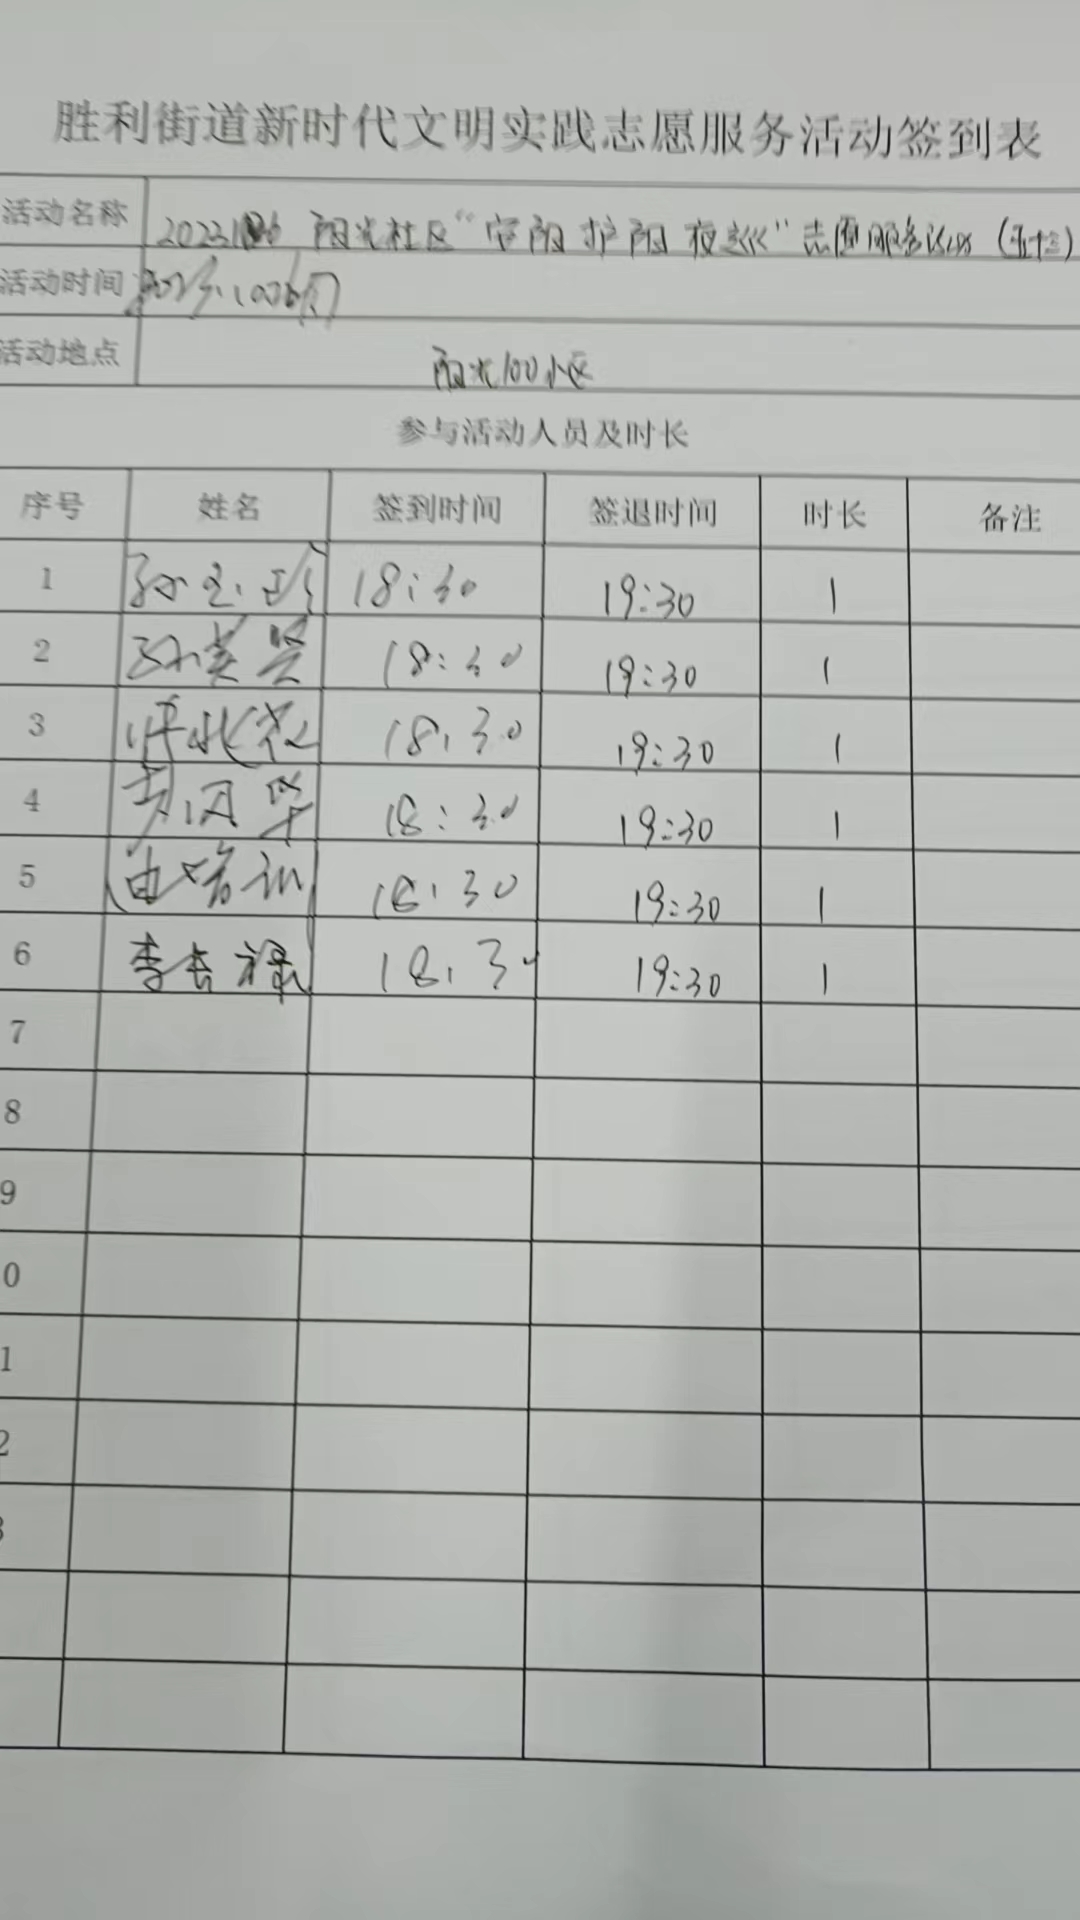 胜利街道新时代文明实践志愿服务活动签到表
活动名称 阳光社区“ 护阳 夜巡”志愿服务活动（五十三）
活动时间
活动地点 阳光100小区
参与活动人员及时长
序号 姓名 签到时间 签退时间 时长 备注
1 18:30 19:30 1
2 18:30 19:30 1
3 18:30 19:30 1
4 18:30 19:30 1
5 18:30 19:30 1
6 李长禄 18:30 19:30 1
7
8
9
0
1
2
3